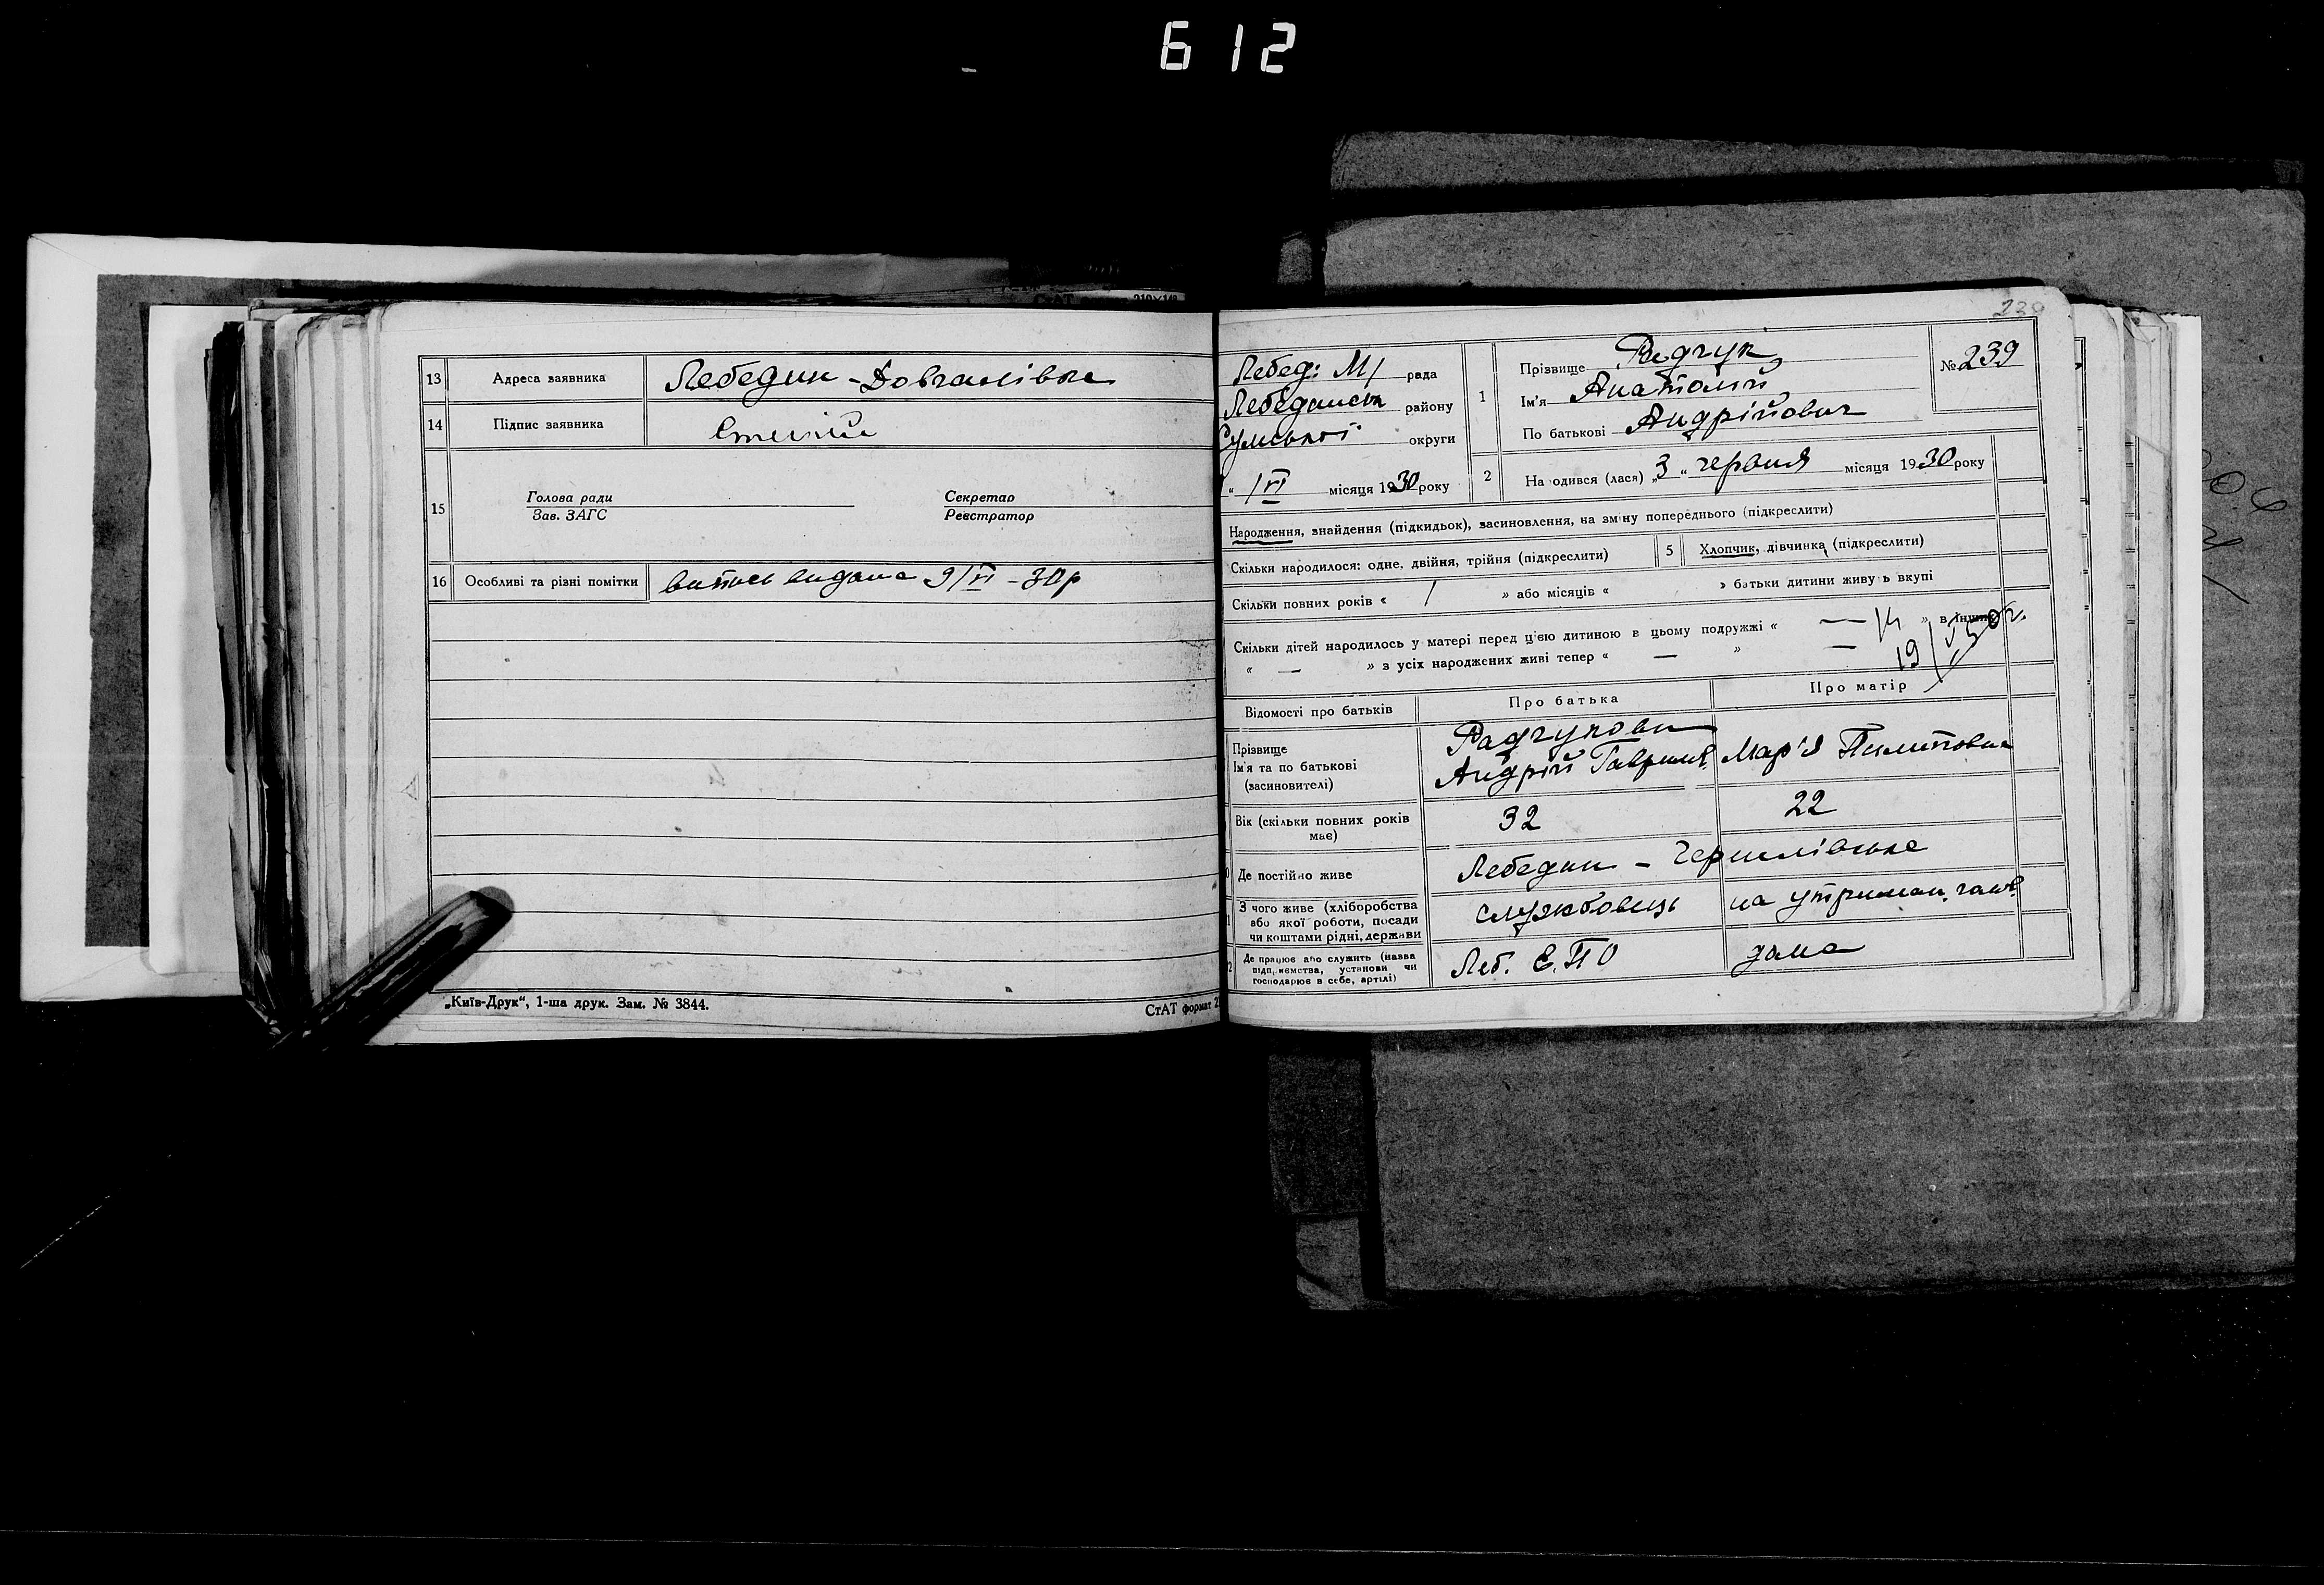 612
СтАТ 210×148
13 Адреса заявника Лебедин - Довгалівка
14 Підпис заявника
15 Голова ради Секретар
Зав. ЗАГС Реєстратор
16 Особливі та різні помітки витись видана 9/VI - 30р
„Київ-Друк“, 1-ша друк. Зам. № 3844.
СтАТ формат 2
239
Лебед: М/ рада
Лебединськ району
Сумської округи
„ /VI місяця 1930 року
1 Прізвище Радчук
Ім'я Анатолій
По батькові Андрійович
№ 239
2 На одився (лася) „3“ червня місяця 1930 року
Народження, знайдення (підкидьок), засиновлення, на зміну попереднього (підкреслити)
Скільки народилося: одне, двійня, трійня (підкреслити) 5 Хлопчик, дівчинка (підкреслити)
Скільки повних років « / » або місяців « » батьки дитини живуть вкупі
Скільки дітей народилось у матері перед цією дитиною в цьому подружжі « — » в інших
« — » з усіх народжених живі тепер « — » —
Відомості про батьків Про батька Про матір
Прізвище
Ім'я та по батькові
(засиновителі)
Радчукови
Андрій Гаврилів. Мар'я Пилиповна
Вік (скільки повних років має) 32 22
Де постійно живе Лебедин -
З чого живе (хліборобства
або якої роботи, посади
чи коштами рідні, держави
службовець на утриман. чолов.
Де працює або служить (назва
підприємства, установи чи
господарює в себе, артілі)
Леб. Е.ПО дома